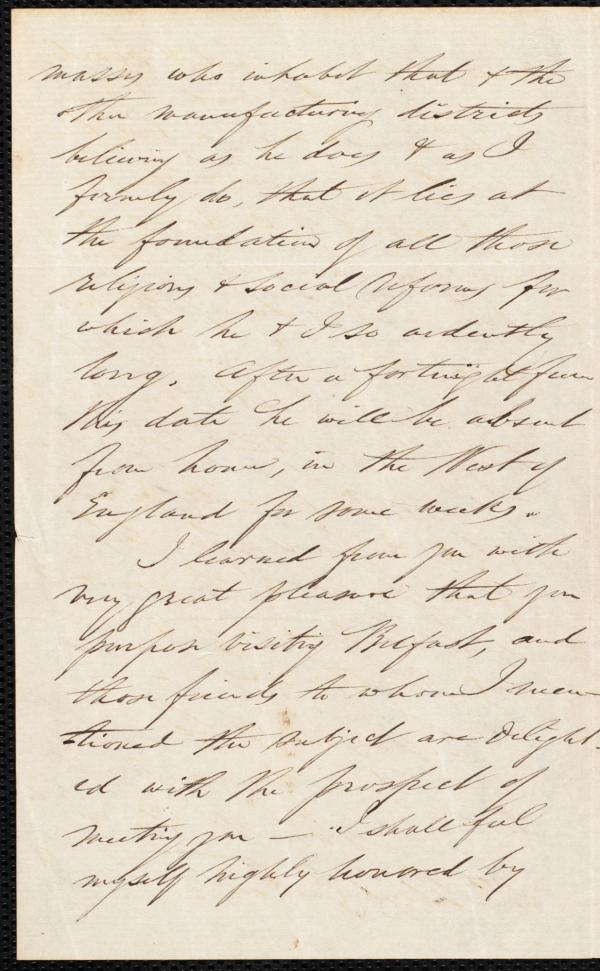 masses who inhabit that & the
other manufacturing districts
believing as he does & as I
firmly do, that it lies at
the foundation of all those
religious & social reforms for
which he & I so ardently
long. After a fortnight from
this date he will be absent
from home, in the West of
England for some weeks.
I learned from you with
very great pleasure that you
purpose visiting Belfast, and
those friends to whom I men-
tioned the subject are delight-
ed with the prospect of
meeting you — I shall feel
myself highly honored by